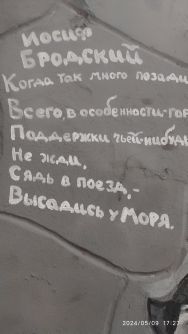 Иосиф
Бродский
Когда так много позади
Всего, в особенности-гор
Поддержки чьей-нибудь
Не жди,
Сядь в поезд,-
Высадись у моря.
2024/05/09 17:27